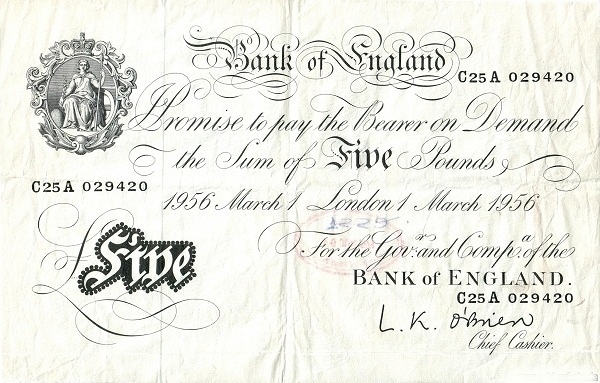 Bank of England
C25A 029420
Promise to pay the Bearer on Demand
the Sum of Five Pounds
C25A 029420
1956 March 1 London 1 March 1956
1225
£Five
For the Gov.r and Comp.a of the
BANK of ENGLAND.
C25A 029420
L. K. O'Brien
Chief Cashier.